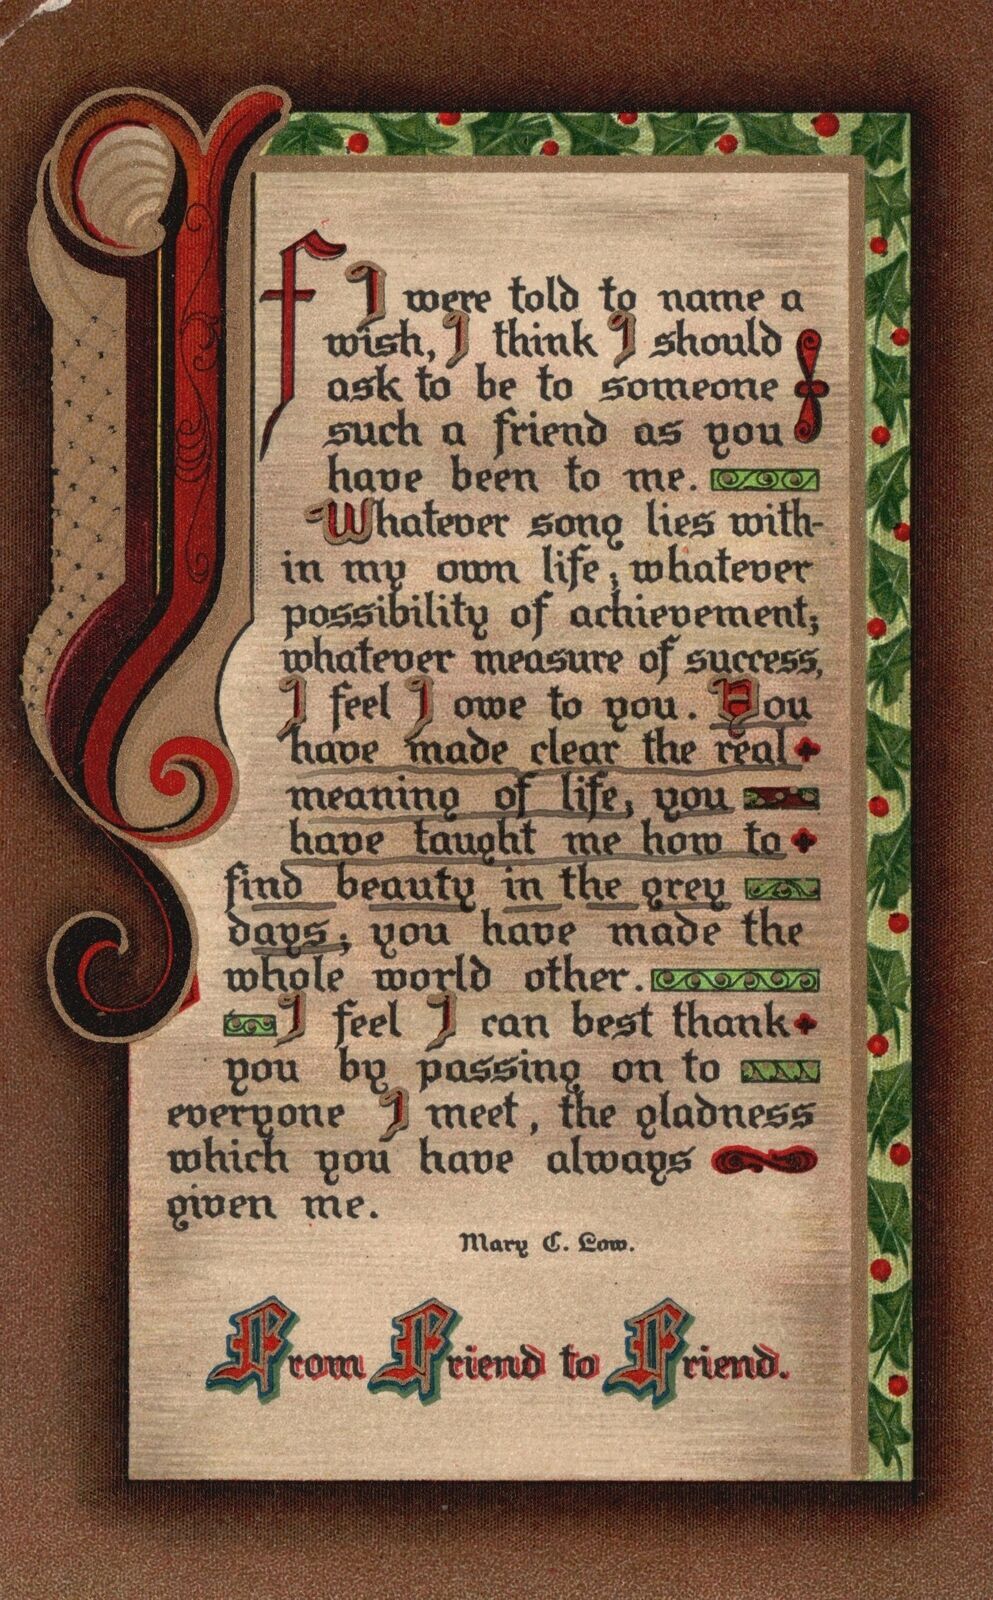 If I were told to name a
wish, I think I should
ask to be to someone
such a friend as you
have been to me.
Whatever song lies with-
in my own life; whatever
possibility of achievement;
whatever measure of success,
I feel I owe to you. You
have made clear the real
meaning of life, you
have taught me how to
find beauty in the grey
days; you have made the
whole world other.
I feel I can best thank
you by passing on to
everyone I meet, the gladness
which you have always
given me.
Mary C. Low.
From Friend to Friend.